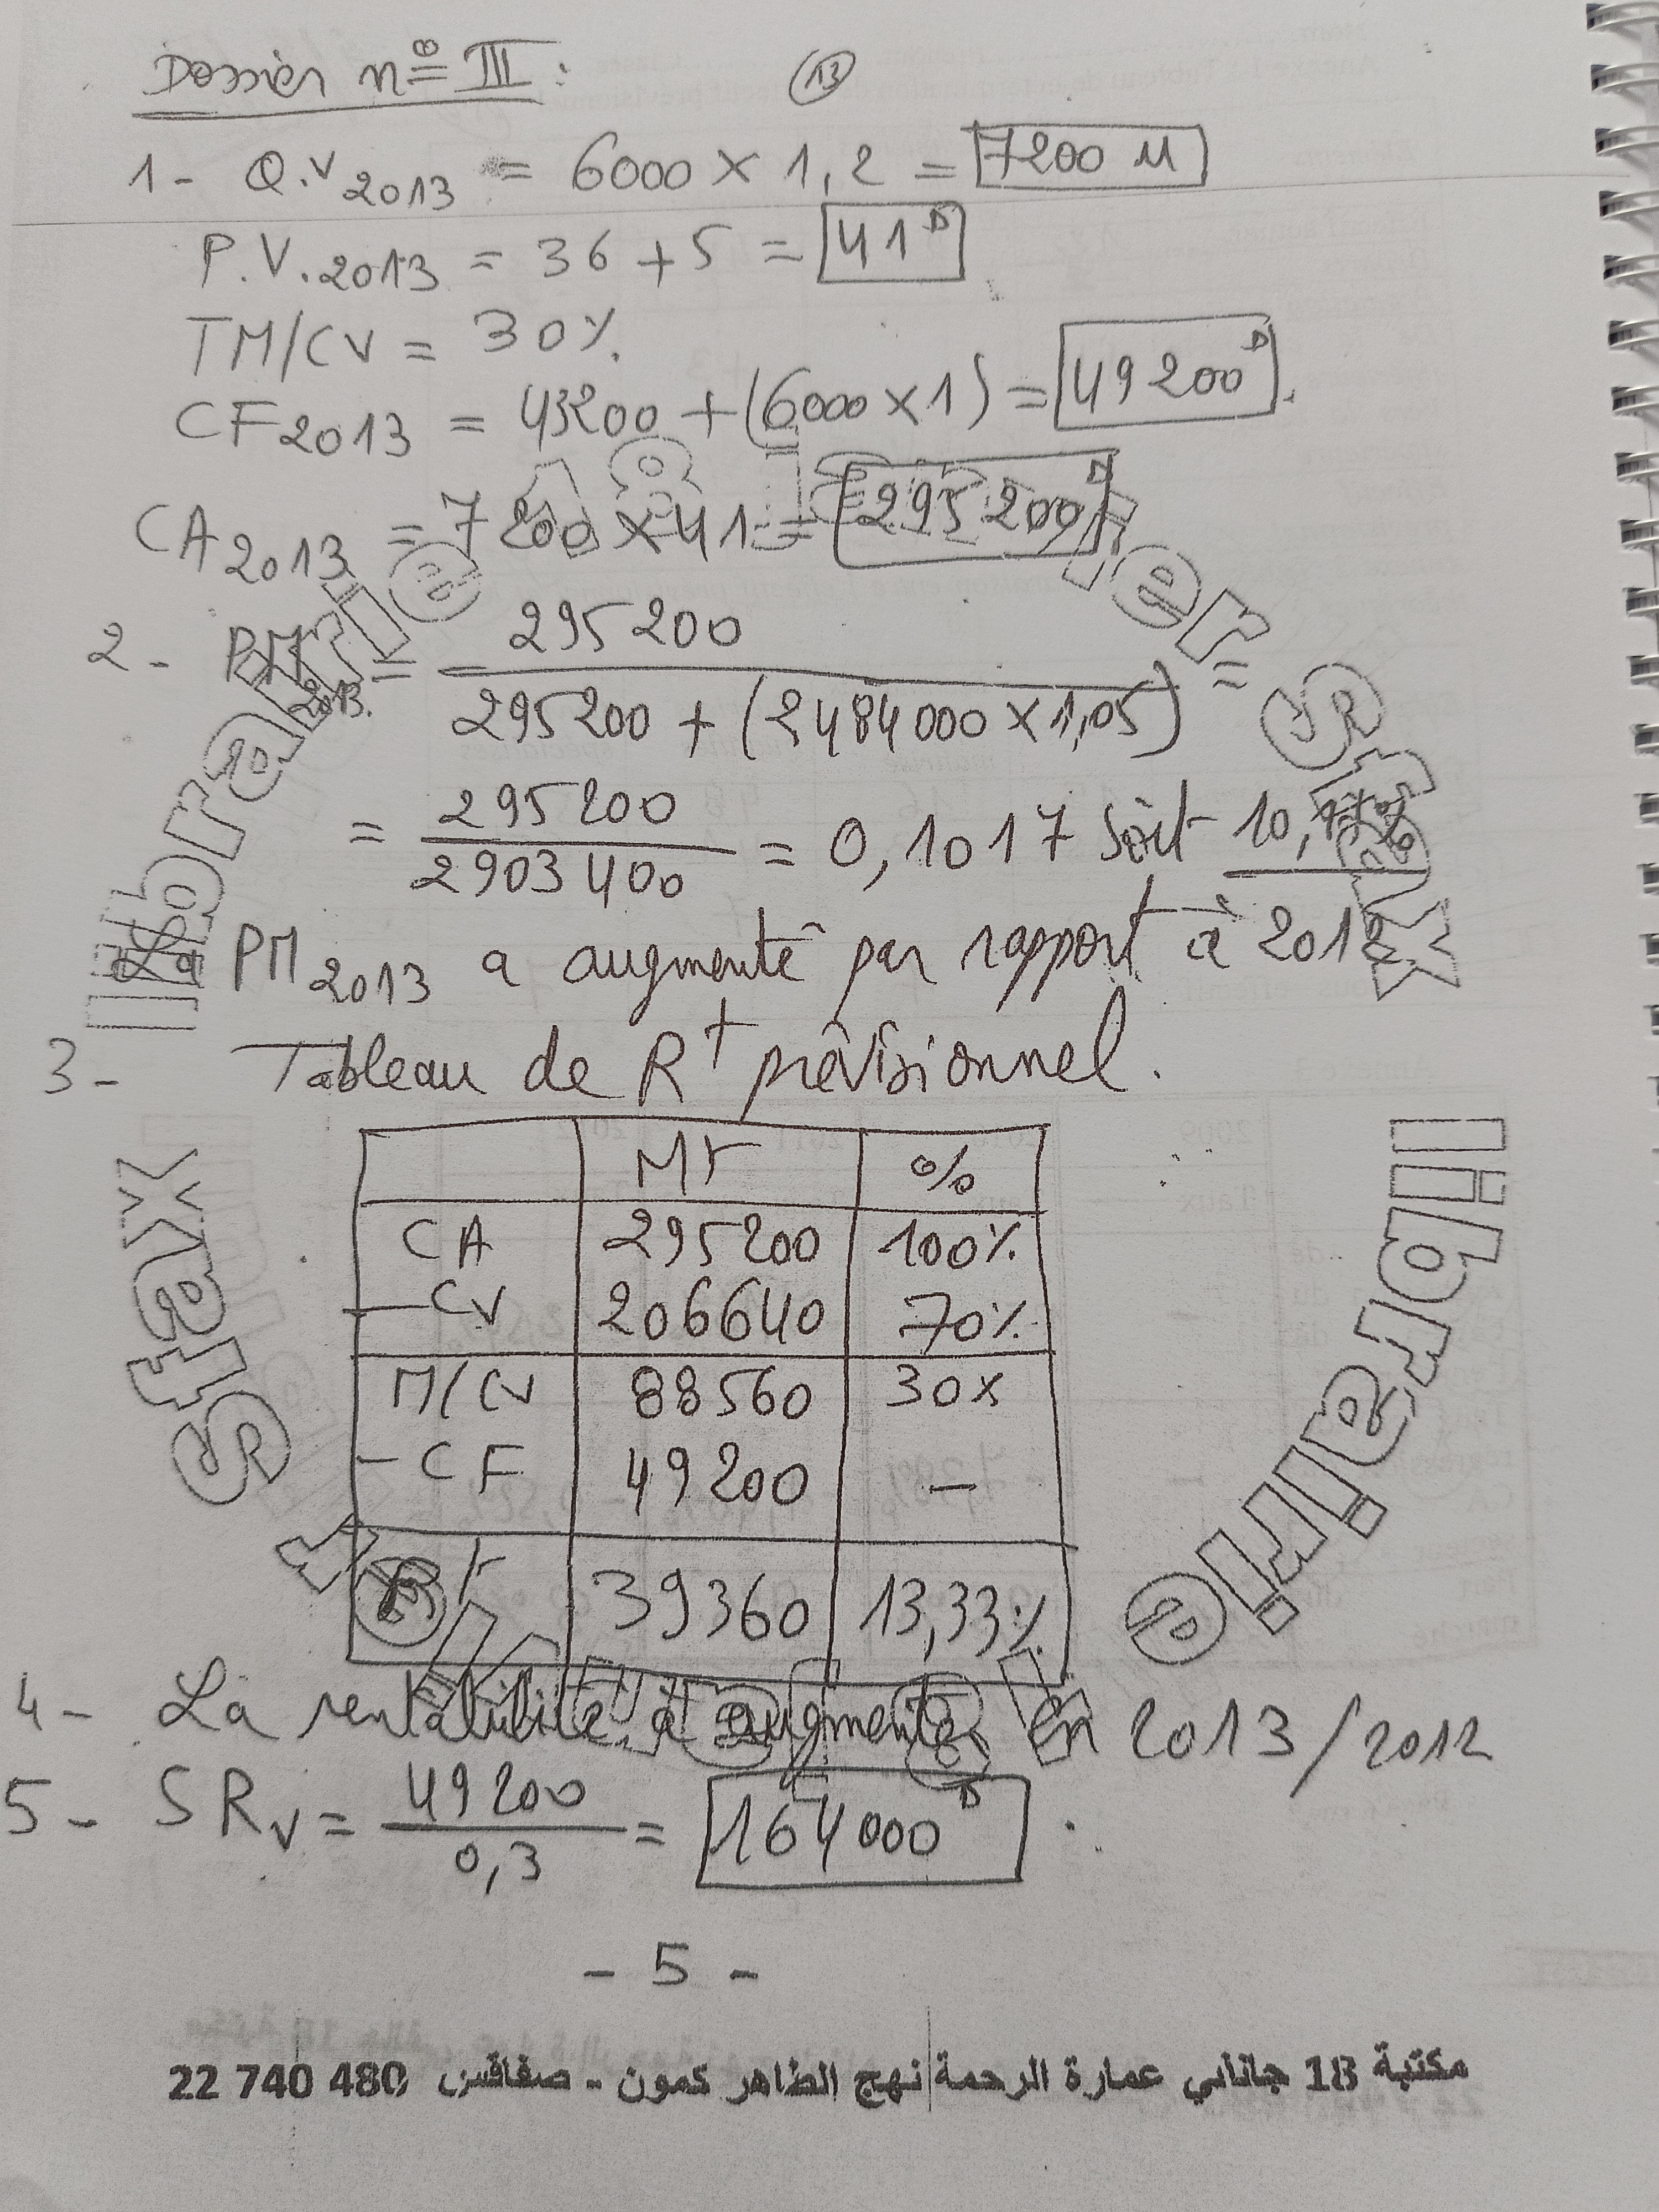 Dossier n° III : 13
1 - Q.V 2013 = 6000 × 1,2 = 7200 U
P.V. 2013 = 36 + 5 = 41 D
TM/CV = 30%.
CF 2013 = 43200 + (6000 × 1) = 49200 D.
CA 2013 = 7200 × 41 = 295200 D
2 - PM 2013. = 295200 / 295200 + (2484000 × 1,05) =
= 295200 / 2903400 = 0,1017 Soit 10,17%
La PM 2013 a augmenté par rapport à 2012
3 - Tableau de Rt prévisionnel.
Mt %
CA 295200 100%
- CV 206640 70%
M/CV 88560 30%
- CF 49200 -
Rt 39360 13,33%
4 - La rentabilité a augmenté en 2013/2012
5 - SRV = 49200 / 0,3 = 164000 D.
- 5 -
مكتبة 18 جانفي عمارة الرحمة نهج الطاهر كمون - صفاقس 22 740 480
librairie 18 janvier Sfax
librairie 18 janvier Sfax